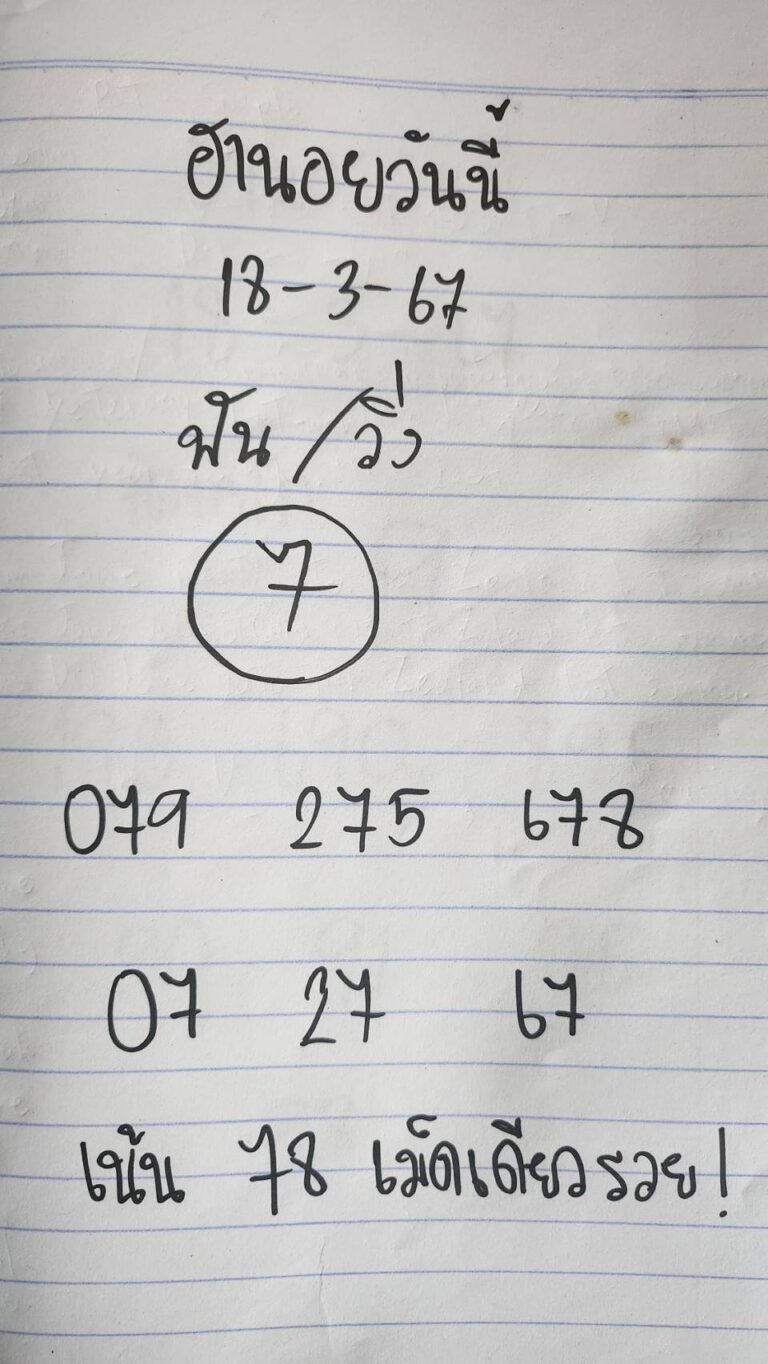 ฮานอยวันนี้
18-3-67
ฟัน/วิ่ง
7
079 275 678
07 27 67
เน้น 78 เม็ดเดียวรวย!